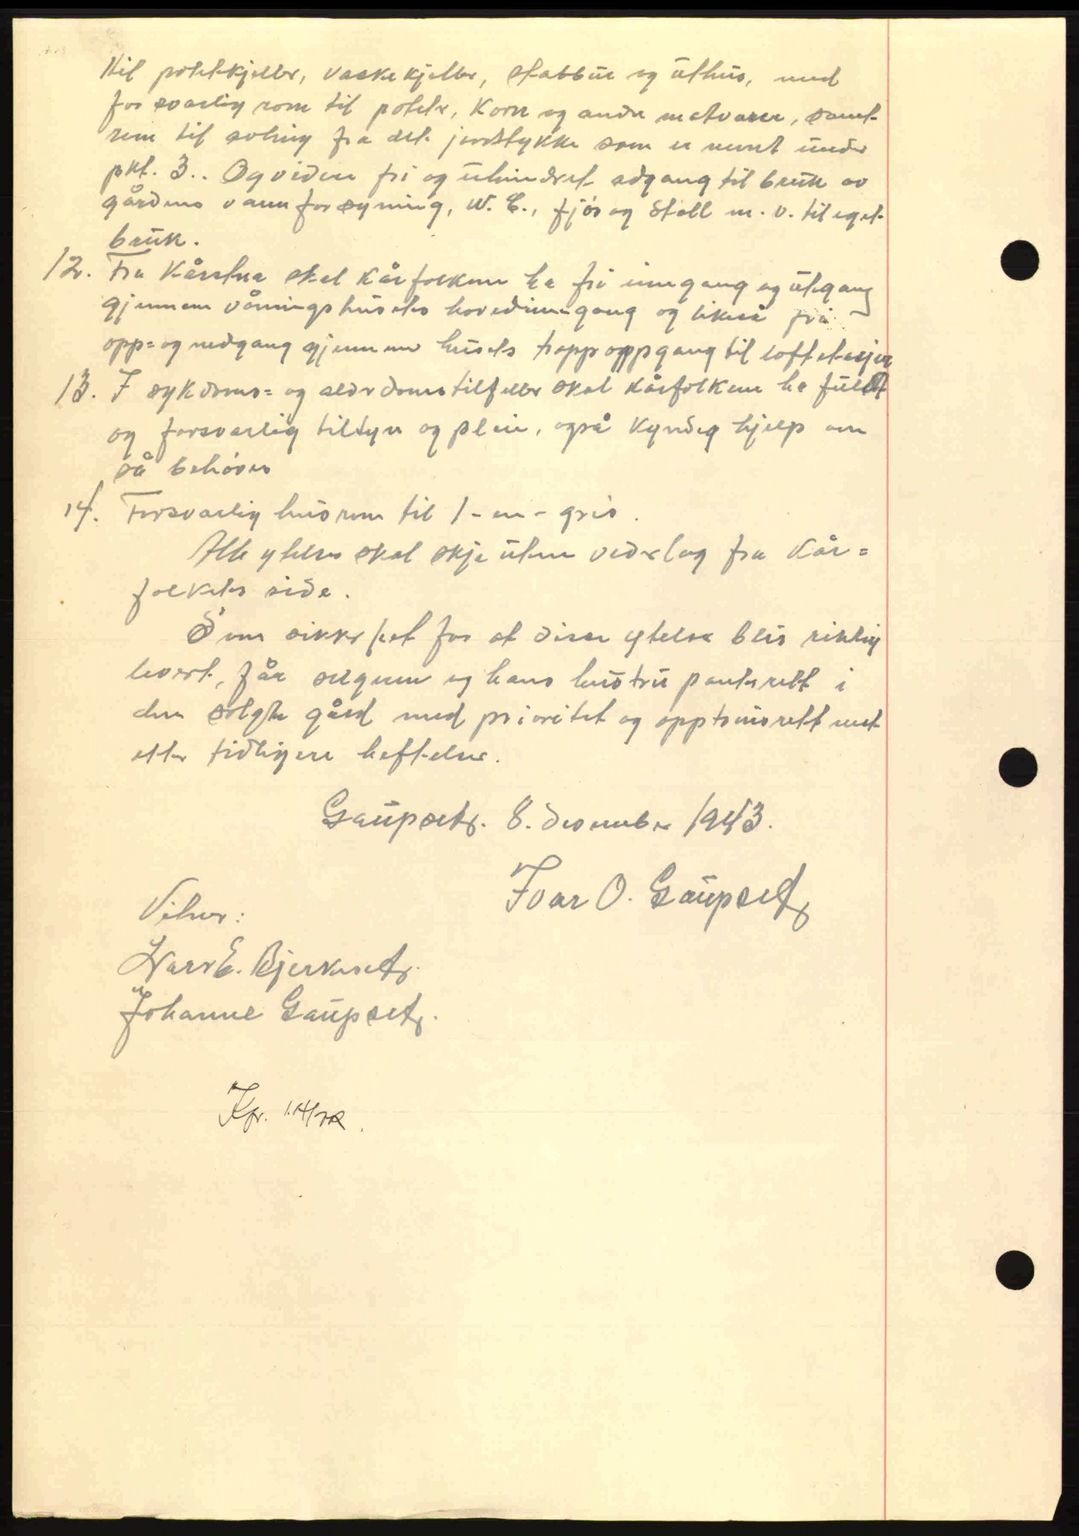 til potetkjeller, vaskekjeller, stabbur og uthus, med
forsvarlig rom til poteter, korn og andre matvarer, samt
rom til avling fra det jordstykke som er nevnt under
pkt. 3.. Og videre fri og uhindret adgang til bruk av
gårdens vannforsyning, W.C., fjøs og stall m.v. til eget
bruk.
12. Fra Kårstua skal kårfolkene ha fri inngang og utgang
gjennem våningshusets hovedinngang og likeså fri
opp= og nedgang gjennem husets trappoppgang til loftetasjen
13. I sykdoms= og alderdomstilfeller skal kårfolkene ha fullt
og forsvarlig tilsyn og pleie, også kyndig hjelp om
så behøves
14. Forsvarlig husrom til 1-en-gris.
Alle ytelser skal skje uten vederlag fra Kår=
folkets side.
Som sikkerhet for at disse ytelser blir riktig
levert, får selgeren og hans hustru panterett i
den solgte gård med prioritet og opptrinsrett nest
etter tidligere heftelser.
Gaupset. 8. desember 1943.
Ivar O. Gaupset
Vitner:
Ivar E. Bjerkeset.
Johanne Gaupset.
Kfr.